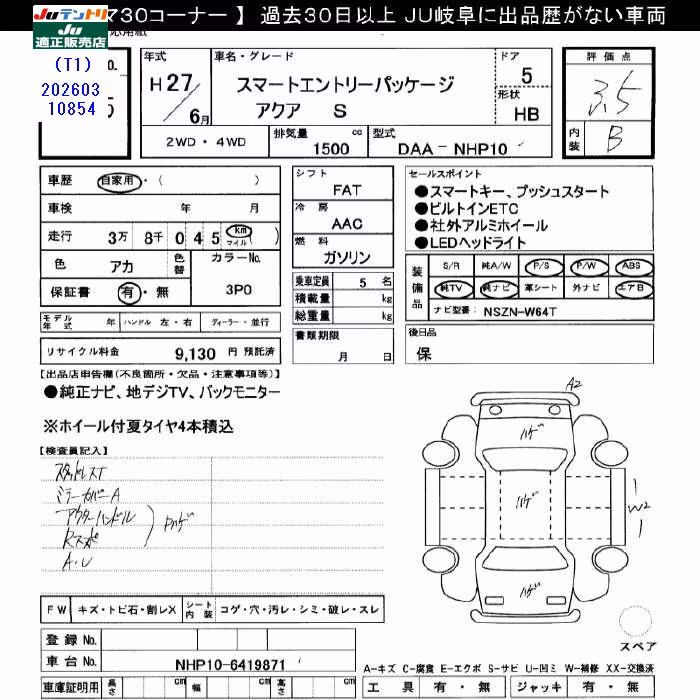 730コーナー 】 過去30日以上 JU岐阜に出品歴がない車両
Juテントリ
Ju適正販売店
(T1)
202603
10854
No.
年式 車名・グレード ドア 評価点
H 27/6月 スマートエントリーパッケージ 5 3.5
アクア S 形状 HB 内装 B
2WD・4WD 排気量 1500 cc 型式 DAA-NHP10
車歴 自家用・( )
車検 年 月
走行 3万 8千 0 4 5 km マイル ( )
色 アカ 色替 カラーNo.
保証書 有・無 3P0
モデル年式 年 ハンドル 左・右 ディーラー・並行
リサイクル料金 9,130 円 預託済
シフト FAT
冷房 AAC
燃料 ガソリン
乗車定員 5 名
積載量 kg
総重量 kg
書類期限 月 日
セールスポイント
●スマートキー、プッシュスタート
●ビルトインETC
●社外アルミホイール
●LEDヘッドライト
装備品 S/R 純A/W P/S P/W ABS
純TV 純ナビ 革シート 外ナビ エアB
ナビ型番: NSZN-W64T
後日品
保
【出品店申告欄(不良箇所・欠品・注意事項等)】
●純正ナビ、地デジTV、バックモニター
※ホイール付夏タイヤ4本積込
【検査員記入】
スタッドレスT
ミラーカバーA
アウターハンドル
Rスポ
Pハゲ
A・U
A2
ハゲ
ハゲ
ハゲ
W2
スペア
FW キズ・トビ石・割レX シート内装 コゲ・穴・汚レ・シミ・破レ・スレ
登録 No.
車台 No. NHP10-6419871
車庫証明用 長さ cm 幅 cm 高さ cm
A-キズ C-腐食 E-エクボ S-サビ U-凹ミ W-補修 XX-交換済
工具 有・無 ジャッキ 有・無